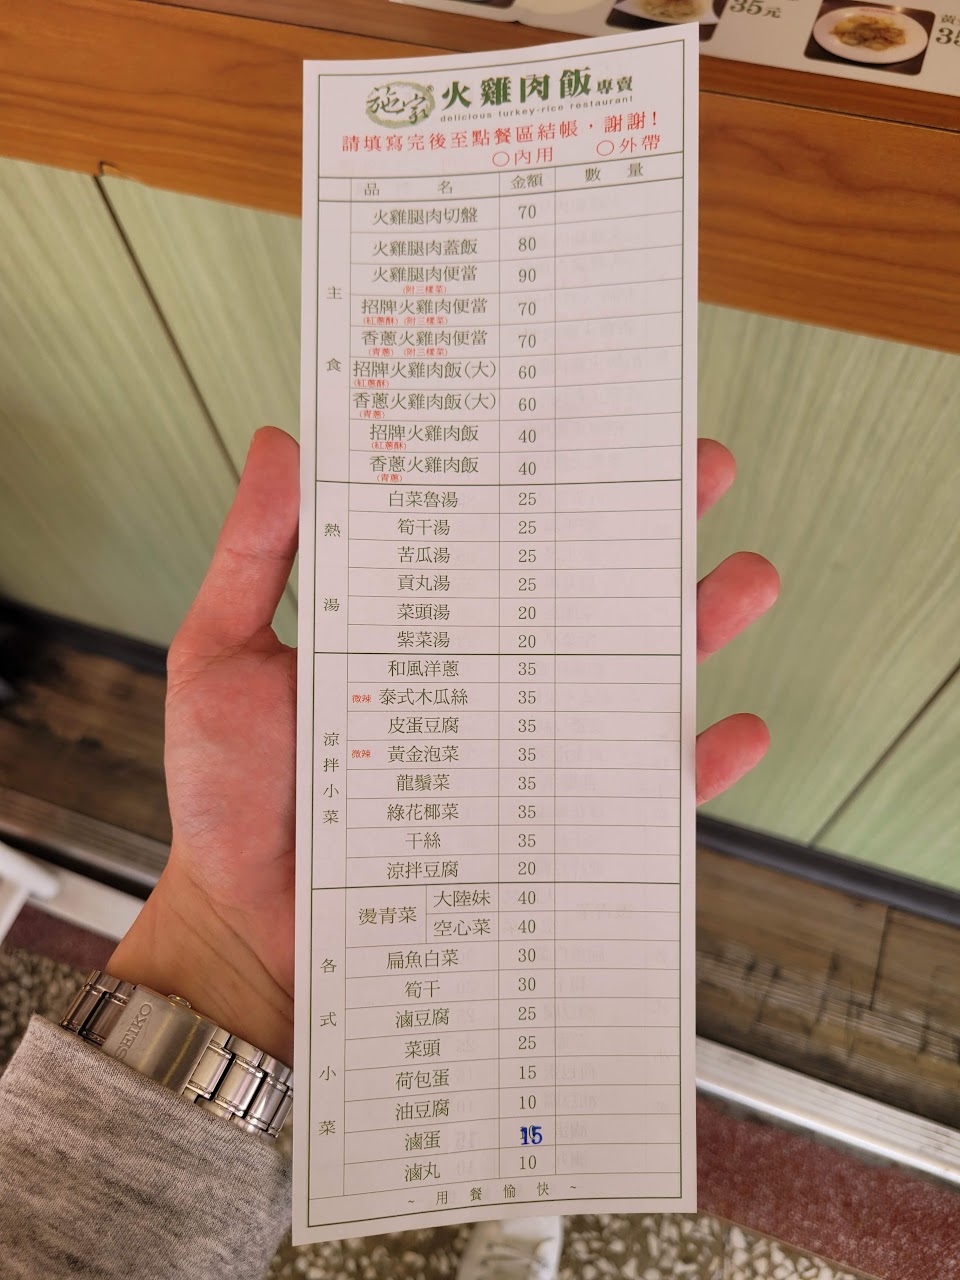 35元
黃金
35
施家® 火雞肉飯 專賣
delicious turkey-rice restaurant
請填寫完後至點餐區結帳，謝謝!
○內用 ○外帶
品 名 金額 數 量
主食
火雞腿肉切盤 70
火雞腿肉蓋飯 80
火雞腿肉便當 90
(附三樣菜)
招牌火雞肉便當 70
(紅蔥酥) (附三樣菜)
香蔥火雞肉便當 70
(青蔥) (附三樣菜)
招牌火雞肉飯(大) 60
(紅蔥酥)
香蔥火雞肉飯(大) 60
(青蔥)
招牌火雞肉飯 40
(紅蔥酥)
香蔥火雞肉飯 40
(青蔥)
熱湯
白菜魯湯 25
筍干湯 25
苦瓜湯 25
貢丸湯 25
菜頭湯 20
紫菜湯 20
涼拌小菜
和風洋蔥 35
微辣 泰式木瓜絲 35
皮蛋豆腐 35
微辣 黃金泡菜 35
龍鬚菜 35
綠花椰菜 35
干絲 35
涼拌豆腐 20
各式小菜
燙青菜 大陸妹 40
空心菜 40
扁魚白菜 30
筍干 30
滷豆腐 25
菜頭 25
荷包蛋 15
油豆腐 10
滷蛋 15
滷丸 10
~ 用 餐 愉 快 ~
SEIKO